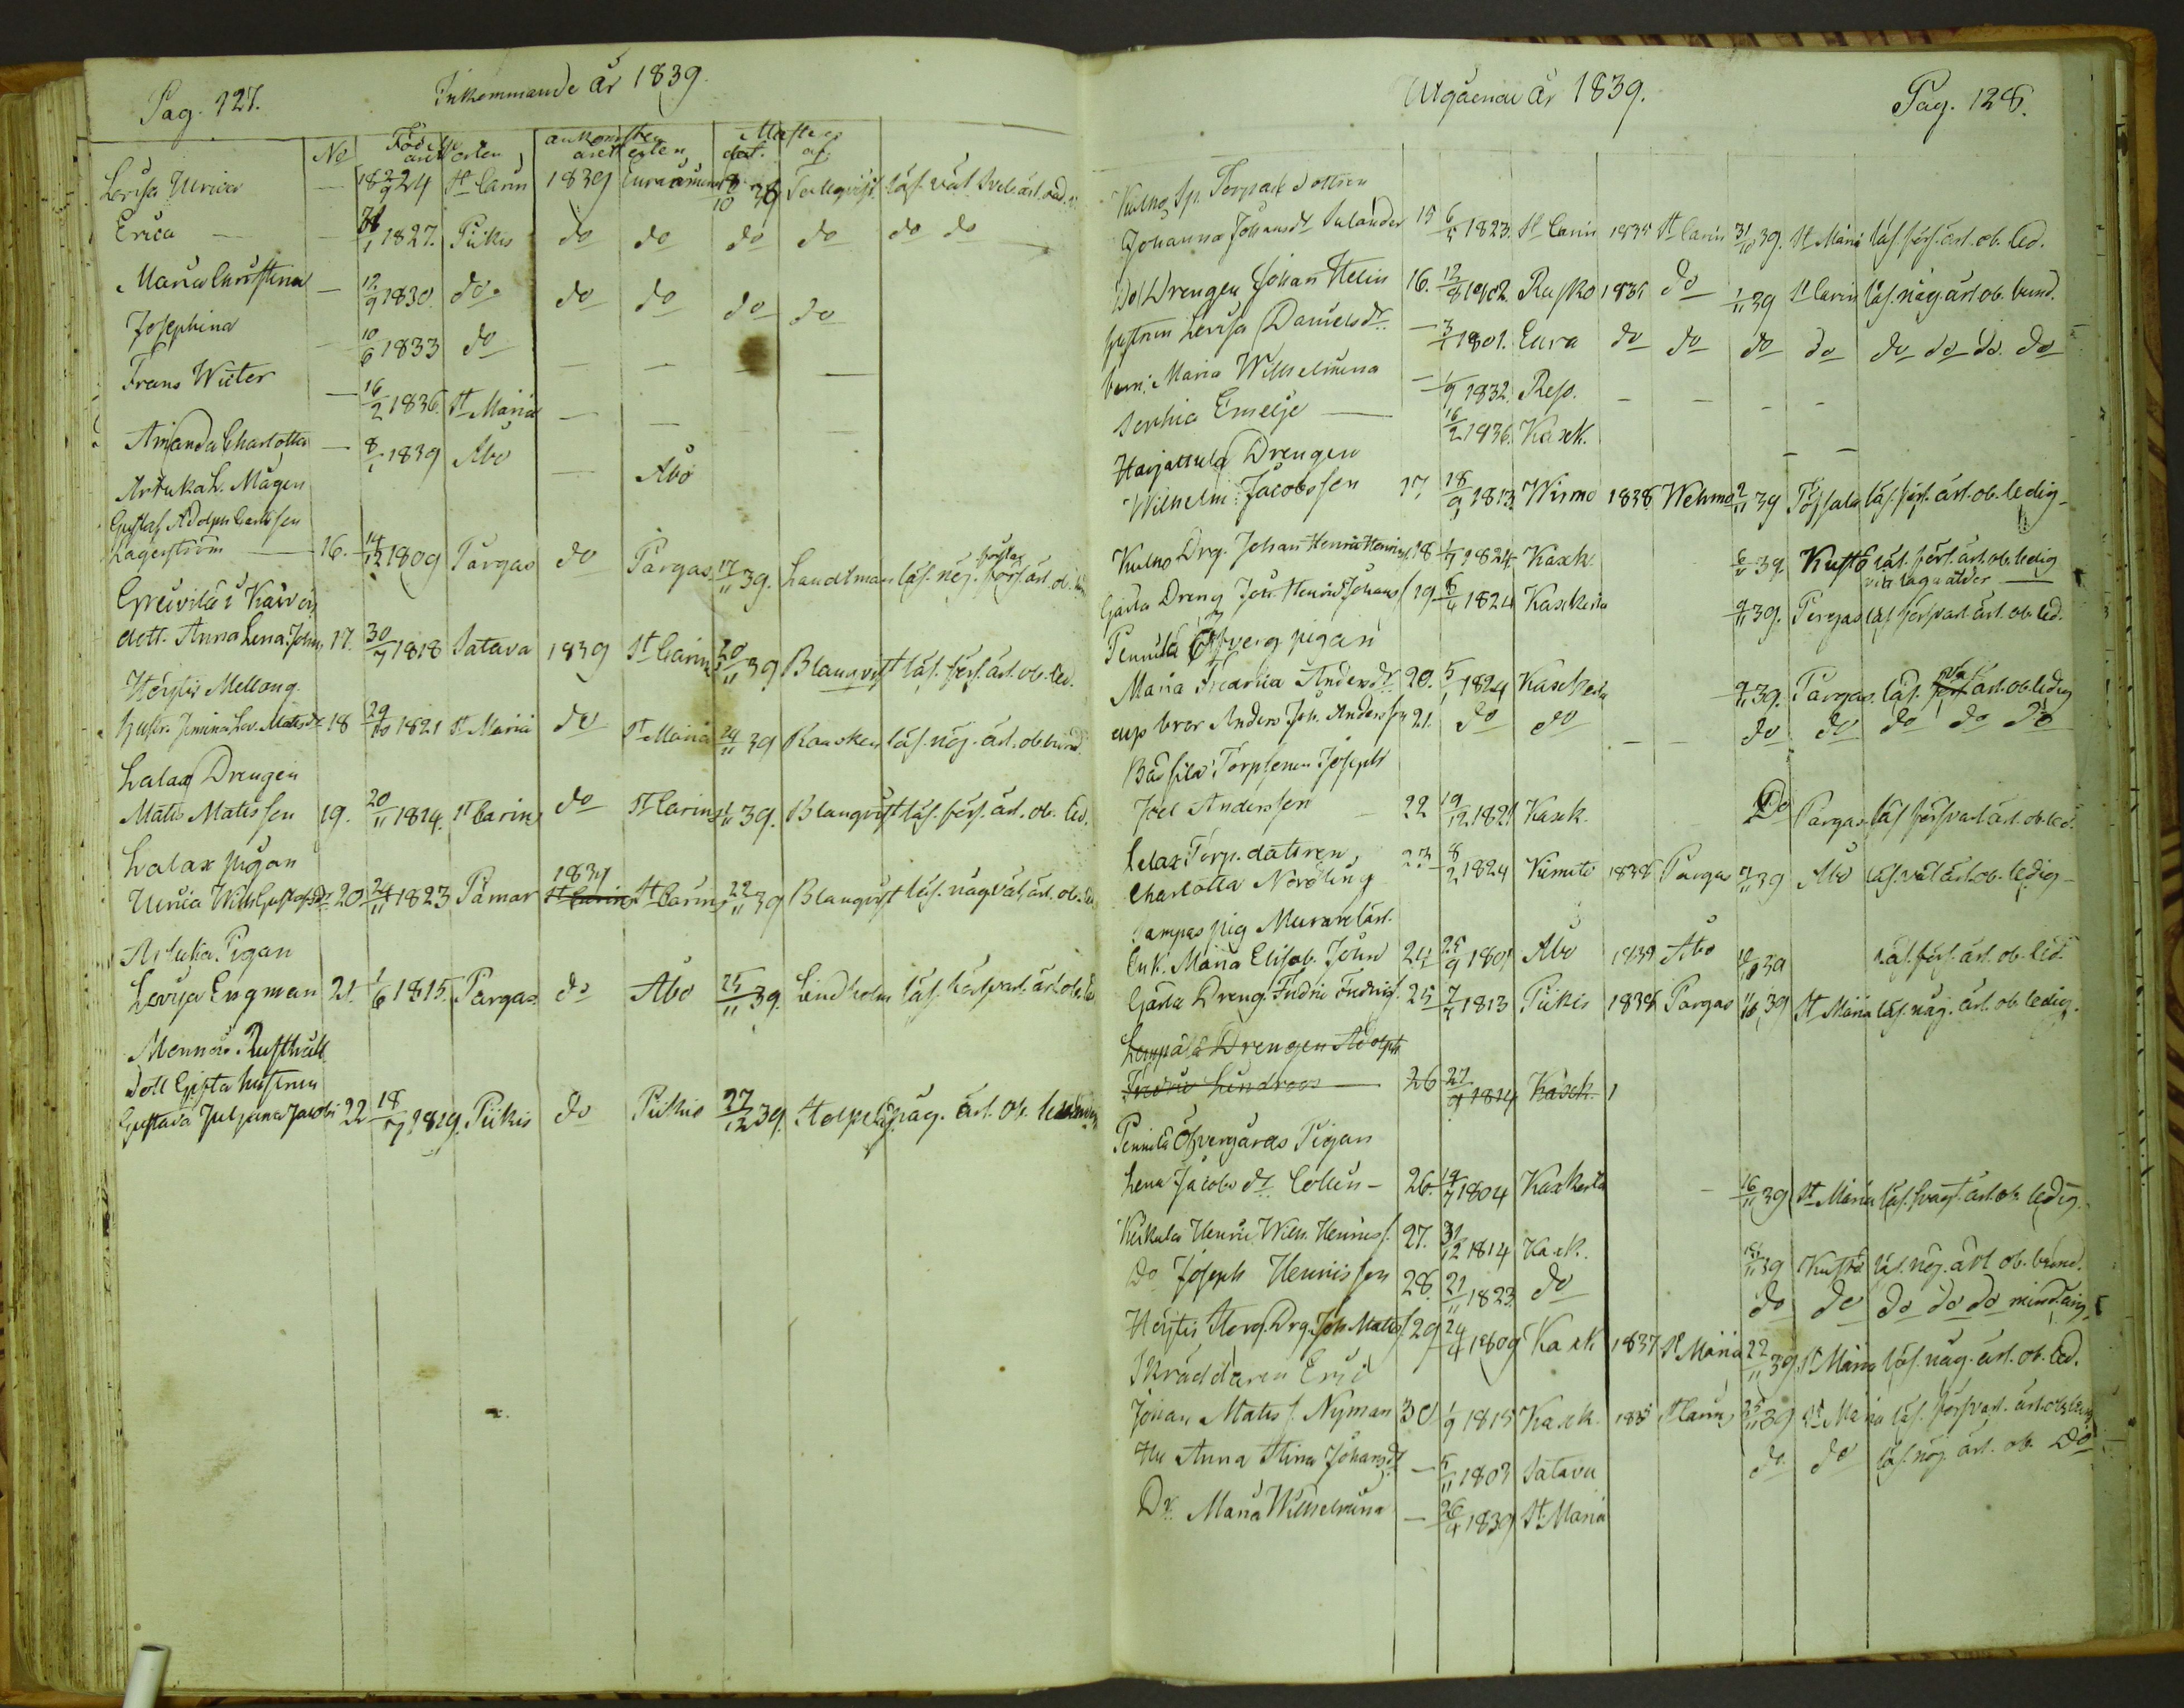 Pag. 127. Inkommande År 1839.
No Födelse året orten ankomsten året orten Attester dat. af.
Lovisa Ulrica — 18 22/9 24 St Carin 1839 8/10 39 läs. väl
Erica — 1827. Pikis do do do do do do
Maria Christina — 12/9 1830. do. do do do do
Josephina — 10/6 1833 do — — —
Frans Victor — 16/2 1836. St Maria — — —
Amanda Charlotta — 8/1 1839 Åbo — Åbo
Artukah. Mågen
Gustaf Adolph Carlsson
Lagerström — 16. 14/12 1809 Pargas do Pargas 17/11 39. Landtman läs. nöj. förs. ärl. ob.
dott. Anna Lena Joh. 17. 30/7 1818 Satava 1839 St Carins 20/11 39 Blanqvist läs. förs. ärl. ob. led.
Höytis Mellang.
hustr. Lov. Matsdr 18 29/10 1821 St Maria do St Maria 24/11 39 läs. nöj. ärl. ob. bund.
Lalax Drengen
Matts Matsson 19. 20/11 1824. St Carins do St Carins 1/11 39. Blanqvist läs. förs. ärl. ob. led.
Lalax pigan 1839
Ulrica Wilh. Gustafsdr 20 24/11 1823 Pämar St Carins St Carins 22/11 39 Blanqvist läs. någ. väl, ärl. ob. led
Artukka. Pigan
Lovisa Engman 21. 1/6 1815. Pargas do Åbo 25/11 39. Lindholm läs. försvarl. ärl. ob. led
Mennois Rusthåll
Dott Gifta hustrun
Gustava Juljana Jacobs 22 18/7 1819. Pikis do Pikis 27/12 39. någ. ärl. ob.
Utgående År 1839. Pag. 128.
Kulho Sp. Torpare dottren
Johanna Johansdr Sulander 15 6/5 1823. St Carin 1835 St Carin 31/10 39. St Maria läs. förs. ärl. ob. led.
Do Drengen Johan Helin 16. 12/8 1802. Rusko 1835 do 1/11 39 St Carin läs. någ. ärl. ob. bund.
hustrun Lovisa Danielsdr. — 3/4 1801. Eura do do do do do do do. do
barn: Maria Wilhelmina — 1/9 1832. Reso. — — — —
Sophia Emelje — 16/2 1836. Kaxk. — —
Harjattula Drengen
Wilhelm Jacobsson 17 18/9 1813 Wirmo 1838 Wehmo 2/11 39 Töfsala läs. förs. ärl. ob. ledig
Kulho Drg. Johan Henric Henrics. 18 1/7 1824 Kaxk. 6/11 39. Kustö läs. förs. ärl. ob. ledig
vid laga ålder
Gärla Dreng Joh. Henric Johans. 19 6/4 1824 Kaxkerta 9/11 39. Pargas läs försvarl. ärl. ob. led.
Pennila Öfverg pigan
Maria Fredrica Andersdr. 20. 5/1 1824 Kaxkerta — 9/11 39. Pargas. läs. väl ärl. ob. ledig
dess bror Anders Joh. Andersson 21. do do — — do do do do do
Torpsonen Joseph
Joel Andersson — 22 19/12 1821 Kaxk. Do Pargas läs försvarl ärl. ob. led.
Lelax Torp. dottren,
Charlotta Nordling 23 8/2 1824 Kimito 1838 Pargas 9/11 39 Åbo läs. väl ärl. ob. ledig
pig
Enk. Maria Elisab. 24 25/9 1801 Åbo 1839 Åbo 39 läs. förs. ärl. ob. led.
Gärla Dreng. Fredric Fredrics. 25 7/7 1813 Pikis 1838 Pargas 11/10 39 St Maria läs. någ. ärl. ob. ledig.
Lempälä Drengen Adolph
Fredric Lindroos — 26 27/9 1814 Kaxk.
Pennilä Öfvergårds Pigan
Lena Jacobsdr. Colin — 26. 14/7 1804 Kaxkerta — 16/11 39 St Maria läs. svagt ärl. ob. ledig.
Keskula Henric Wilh. Henrics. 27. 31/12 1814 Kaxk. 39 Kustö läs. nöj. ärl ob. bund.
Do Joseph Henricsson 28. 21/11 1823. do do do do do do minderårig
Höytis Storg. Drg. Joh. Matts. 29 24/4 1809 Kaxk 1837 St Maria 22/11 39. St Maria läs. någ. ärl. ob. led.
Skräddaren Eric
Johan Matts. Nyman 30 1/9 1815 Kaxk. 1835 St Carins 25/11 39 St Maria läs. försvarl. ärl. ob. ledig
Hu Anna Stina Johansdr — 5/11 1803 Satava do do läs. nöj. ärl. ob. Do
Dr. Maria Wilhelmina — 26/4 1839 St Maria